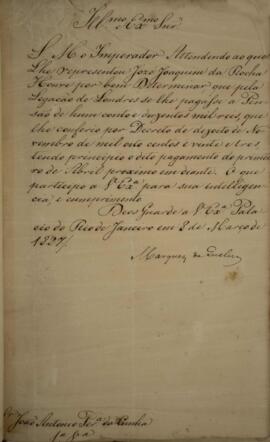 Illmo e Exmo Snr
S. M. o Imperador Attendendo ao que
Lhe representou João Joaquim da Rocha
Houve por bem Determinar que pela
Legação de Londres se lhe pagasse a Pen-
são de hum conto e duzentos mil reis, que
lhe conferio por Decreto de dezoito de No-
vembro de mil oito centos e vente e tres,
tendo principio o dito pagamento do primei-
ro de Abril proximo em diante. O que
participo a V. Exa. para sua intelligen-
cia, e cumprimento.
Deos Guarde a V. Exa. Pala-
cio do Rio de Janeiro em 8 de Março de
1827/
Marquez de Queluz
João Antonio Per.a da Cunha